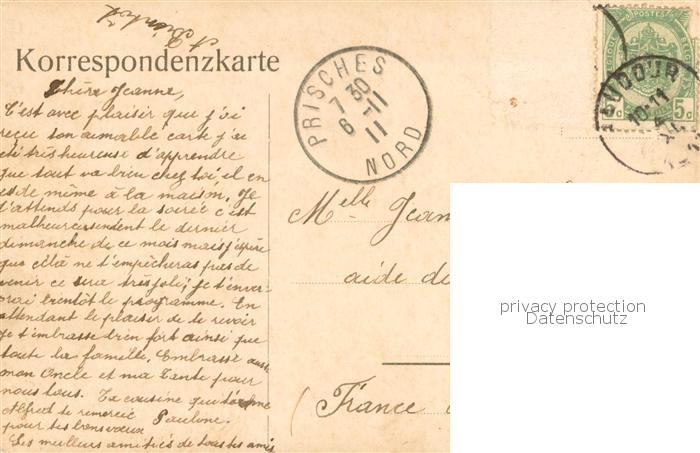 Korrespondenzkarte
Chère Jeanne,
C'est avec plaisir que j'ai
reçu ton aimable carte j'ai
été très heureuse d'apprendre
que tout va bien chez toi il en
est de même à la maison. Je
t'attends pour la soirée c'est
malheureusement le dernier
dimanche de ce mois mais j'espère
que cela ne t'empêcheras pas de
venir ce sera très joli; je t'enver-
rai bientôt le programme. En
attendant le plaisir de te revoir
je t'embrasse bien fort ainsi que
toute la famille. Embrasse aussi
mon Oncle et ma Tante pour
nous tous. Ta cousine qui t'aime
Alfred te remercie Pauline
pour tes bons vœux
Les meilleurs amitiés de toutes
PRISCHES
7 30
6 -11
11
NORD
POSTES
5c 5c
10-11
Melle Jean
aide de
France
privacy protection
Datenschutz